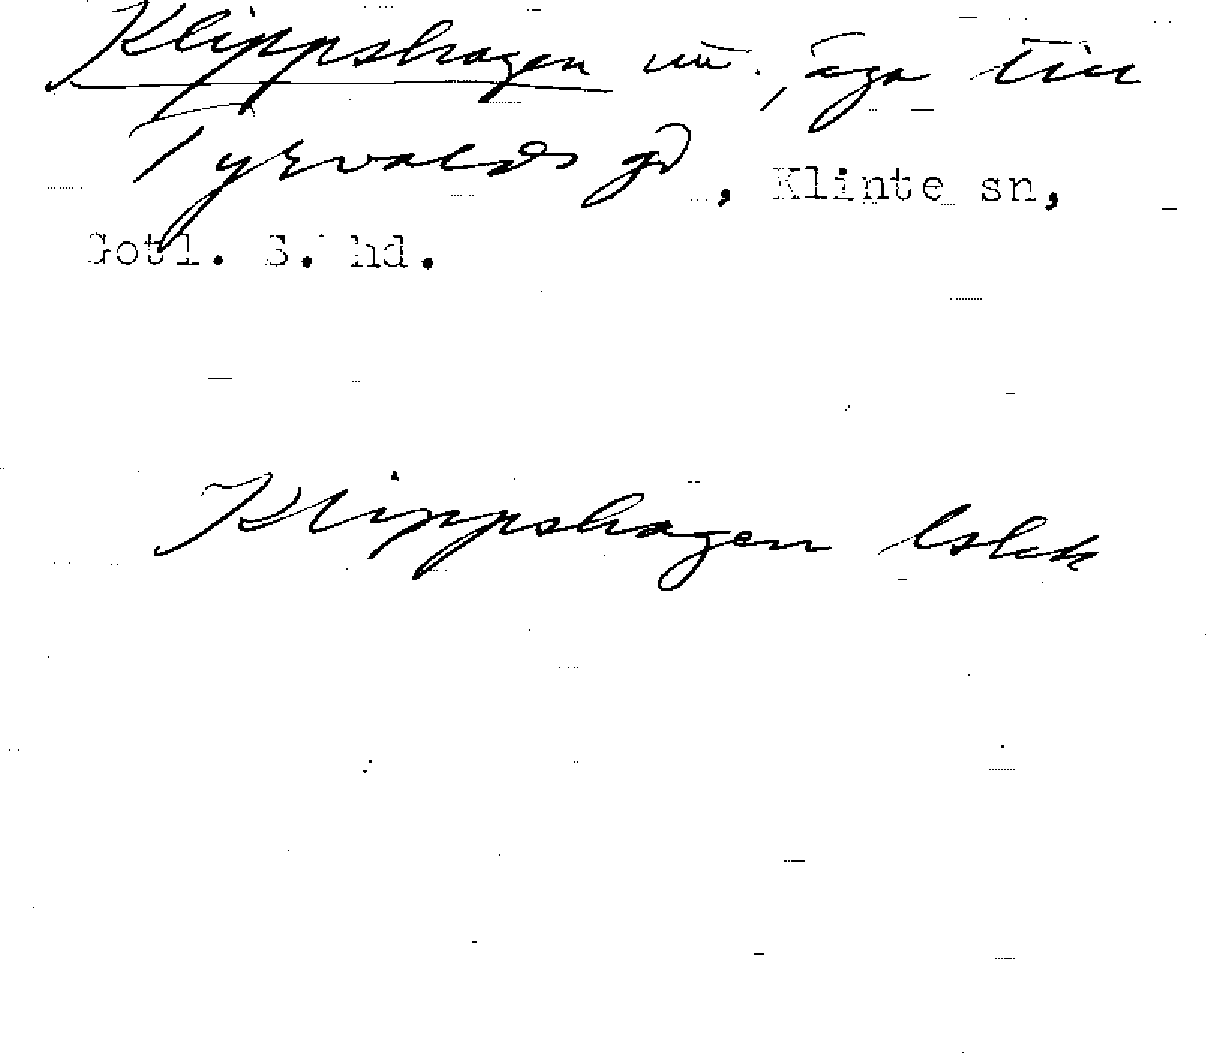 Klippshagen nu., äga till
Tyrvalds gd, Klinte sn,
Gotl. S. hd.
Klippshagen lslk